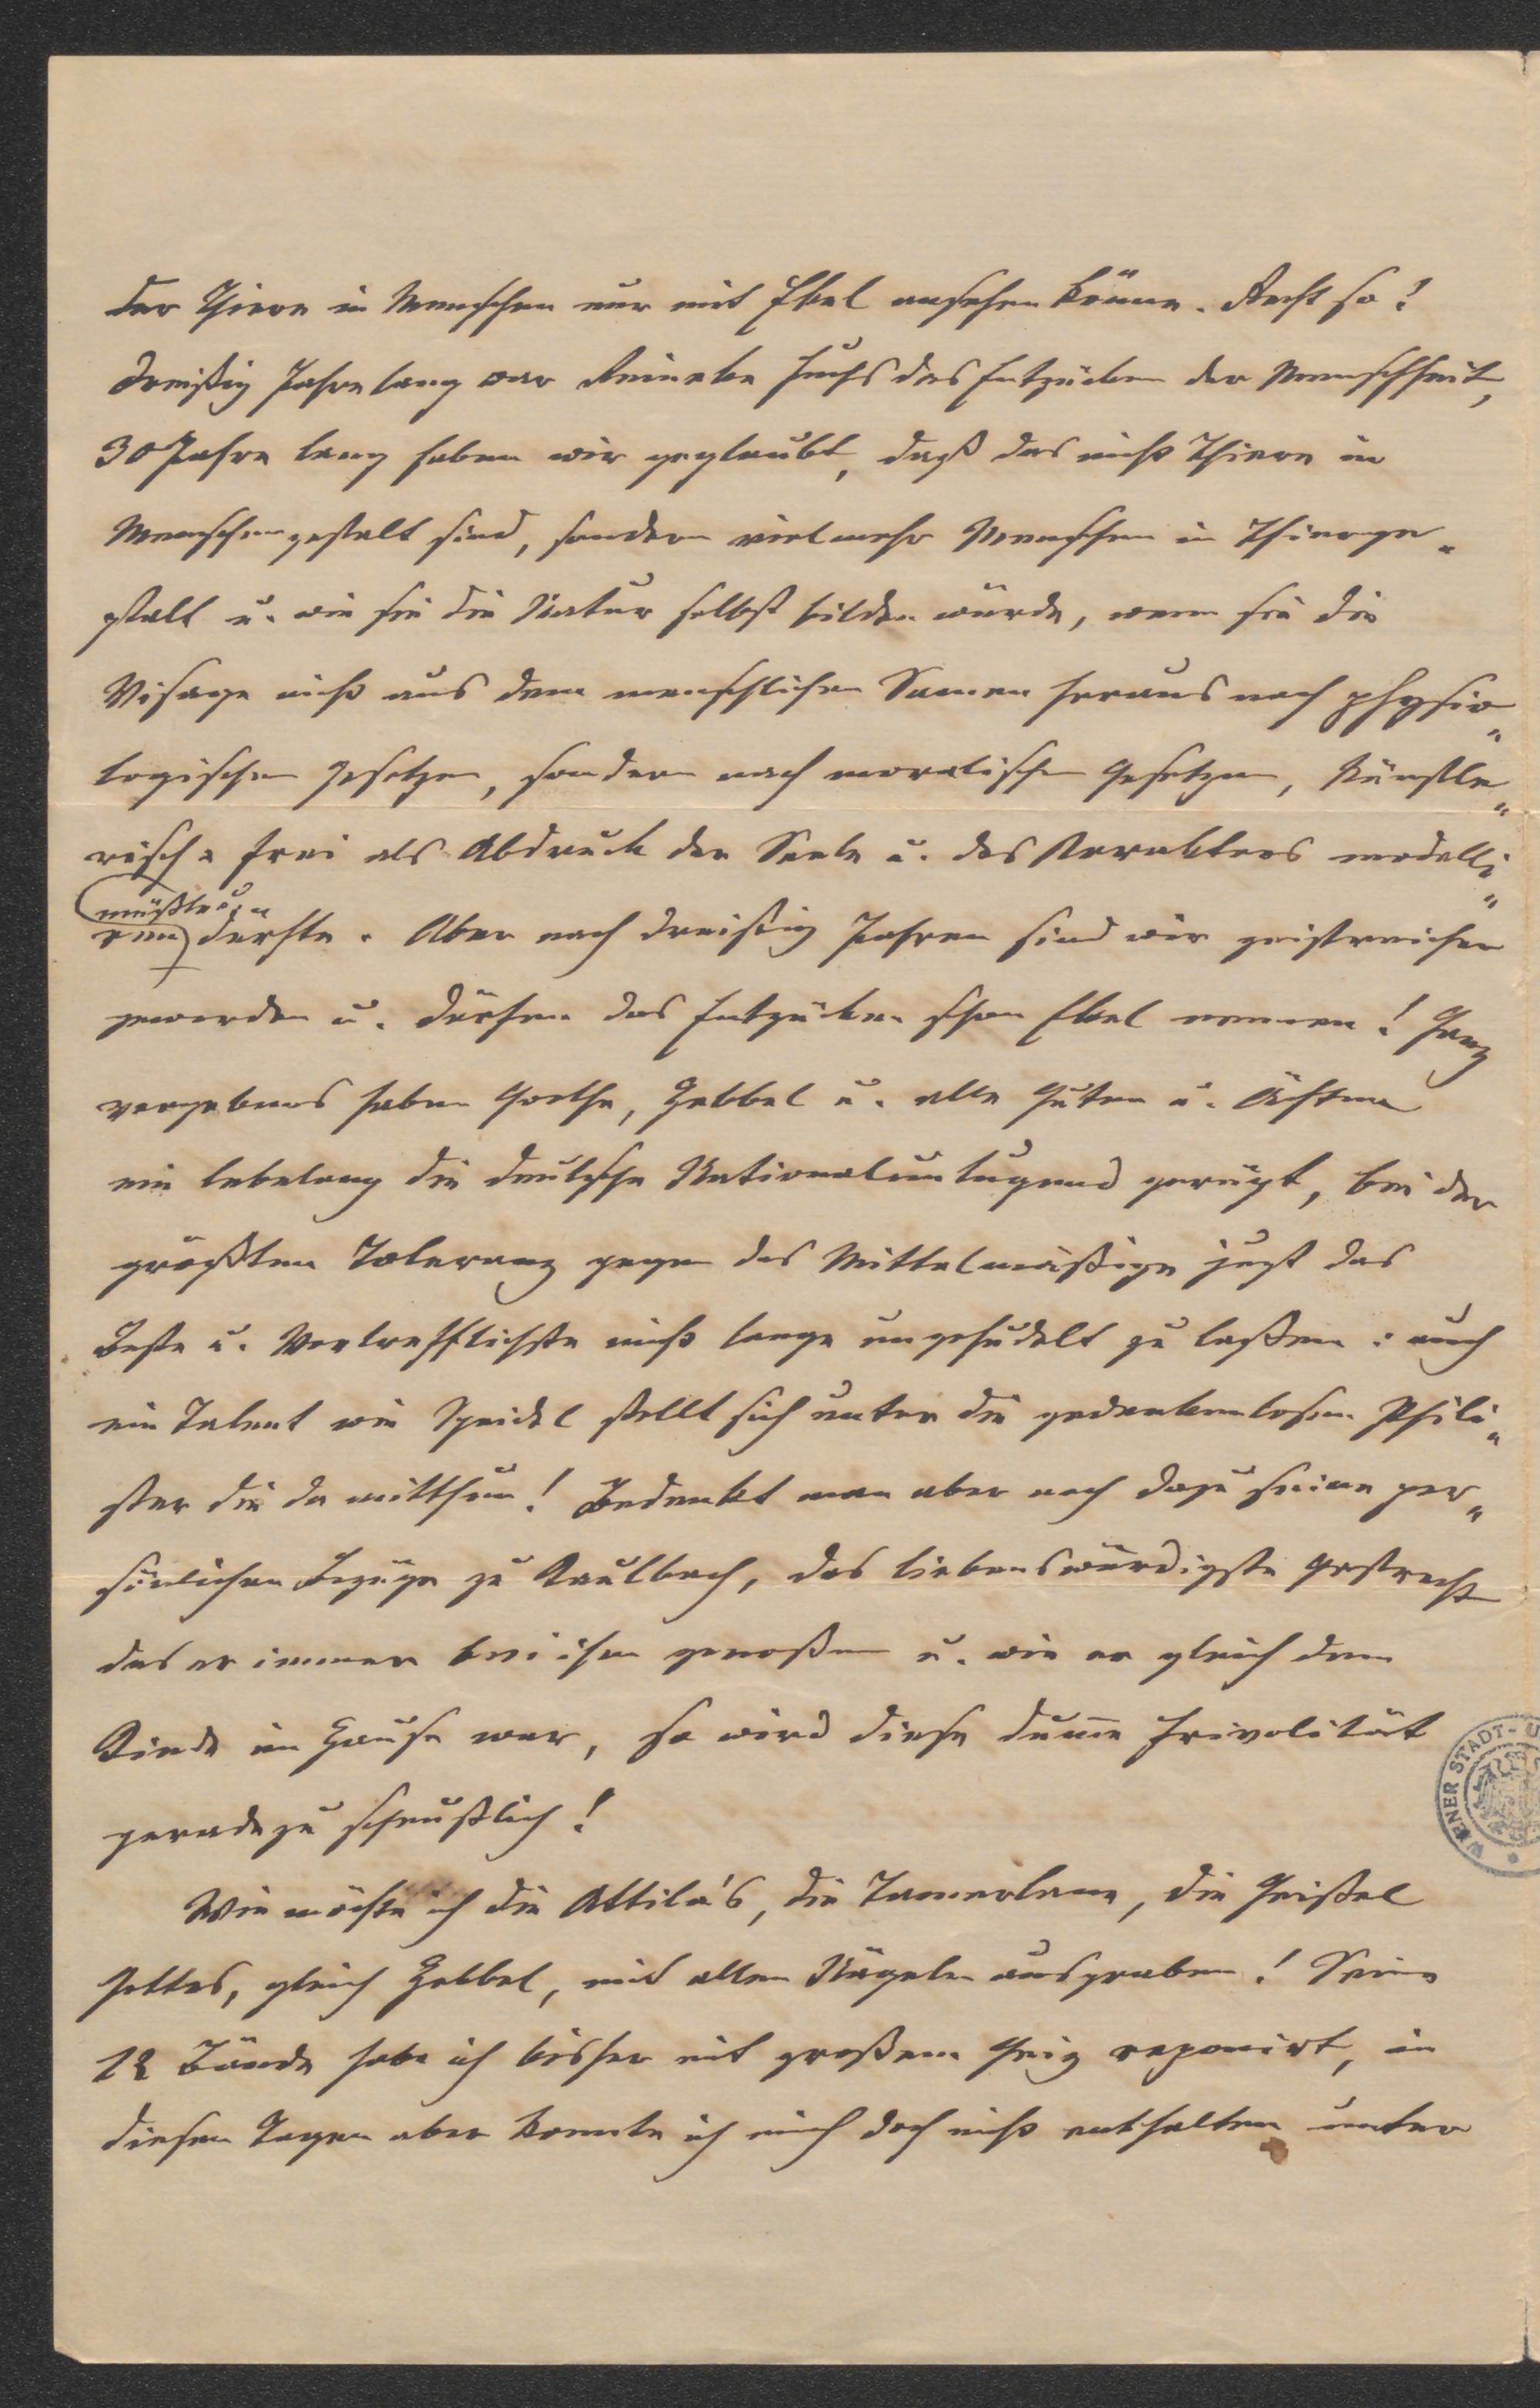 der Thiere in Menschen nur mit Ekel ansehen könne. Recht so!
Dreißig Jahre lang war Reineke Fuchs das Entzücken der Menschheit,
30 Jahre lang haben wir geglaubt, daß das nicht Thiere in
Menschengestalt sind, sondern vielmehr Menschen in Thierge„
stalt u. wie sie die Natur selbst bilden würde, wenn sie die
Visage nicht aus dem menschlichen Samen heraus nach physio„
logischen Gesetzen, sondern nach moralischen Gesetzen, künstle„
risch = frei als Abdruck der Seele u. des Karakters modelli„
müßte u.
ren dürfte. Aber nach dreißig Jahren sind wir geistreicher
geworden u. dürfen das Entzücken schon Ekel nennen! Ganz
vergebens haben Goethe, Hebbel u. alle Guten u. Ächten
ein lebelang die deutsche Nationaluntugend gerügt, bei der
größten Toleranz gegen das Mittelmäßige just das
Beste u. Vortrefflichste nicht lange ungehudelt zu laßen: auch
ein Talent wie Speidel stellt sich unter die gedankenlosen Phili„
ster die da mitthun! Bedenkt man aber noch dazu seine per„
sönlichen Bezüge zu Kaulbach, das liebenswürdigste Gastrecht
das er immer bei ihm genoßen u. wie er gleich dem
Kinde im Hause war, so wird diese dumme Frivolität
geradezu scheußlich!
Wie möchte ich die Attila's, die Tamerlane, die Geißel
Gottes, gleich Hebbel, mit allen Nägeln ausgraben! Seine
12 Bände habe ich bisher mit großem Geiz reponirt, in
diesen Tagen aber konnte ich mich doch nicht enthalten unter
WIENER STADT-U